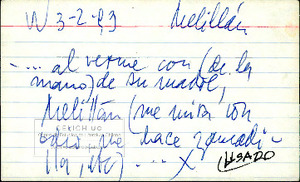 W 3-2-83 Melillán
- ... al verme con (de la
mano) de su madre,
Melillán (me mira con
odio, me hace zancadi-
lla, etc) ... X USADO